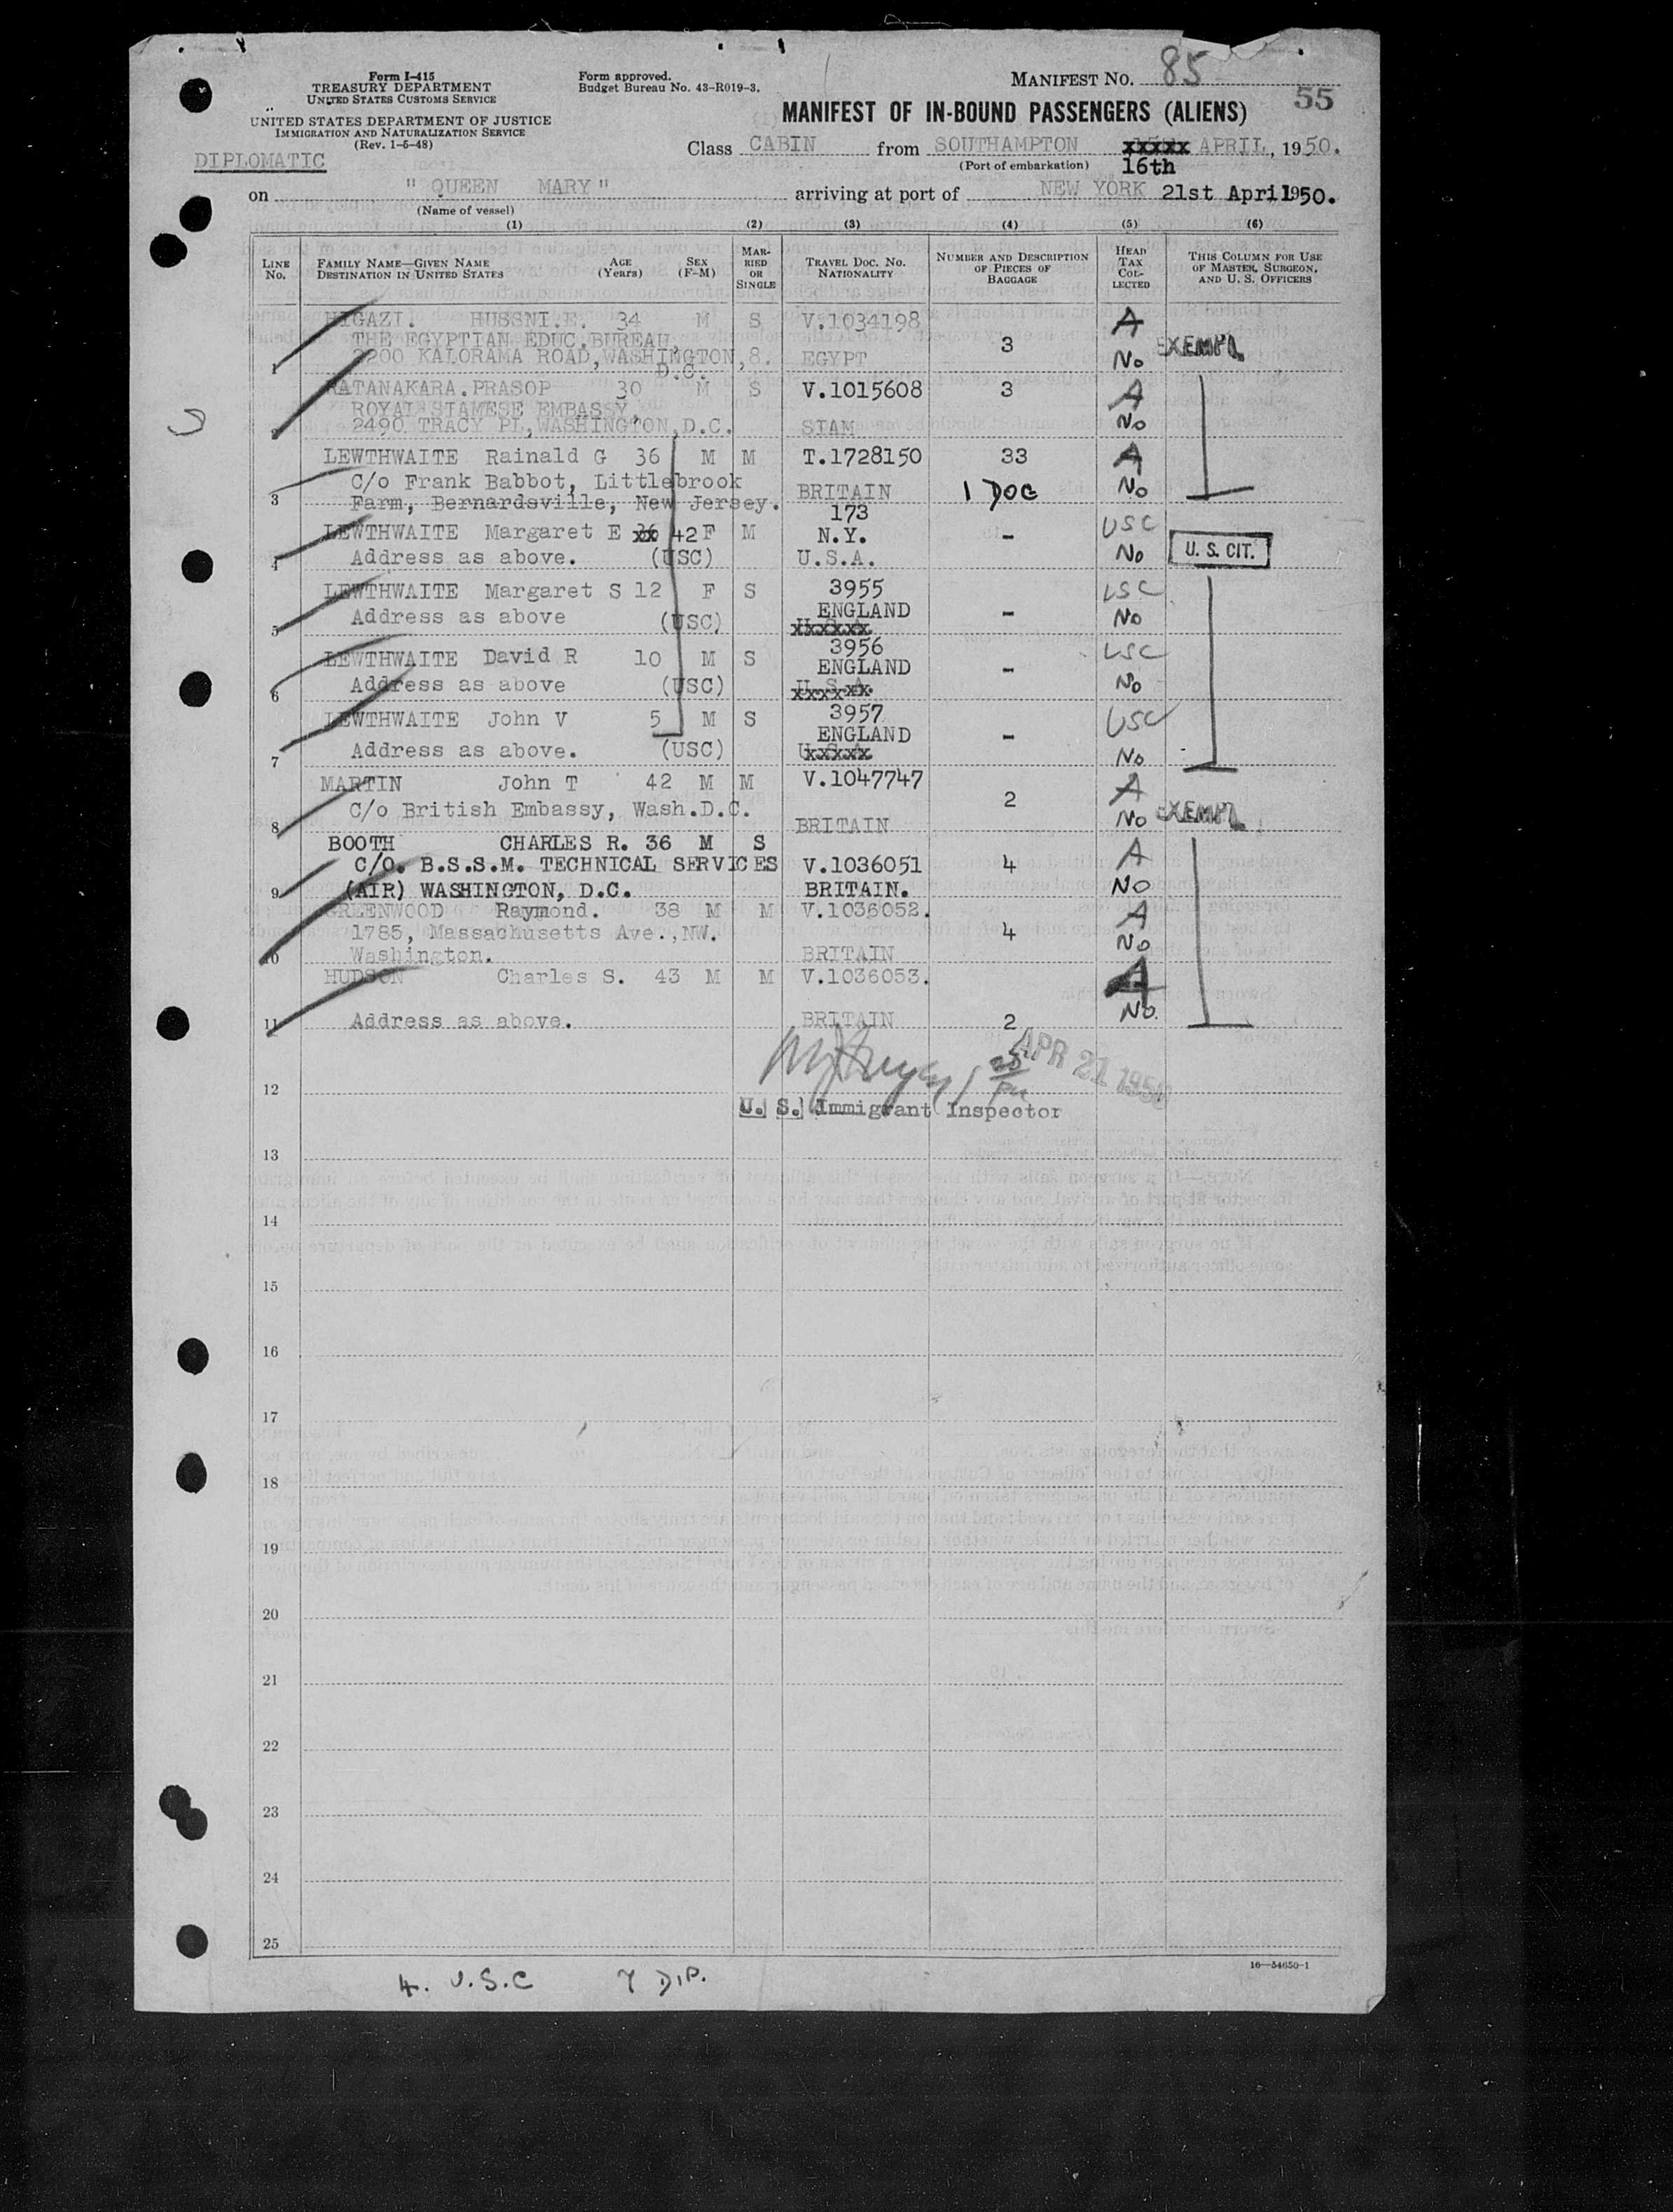 Form I-415
TREASURY DEPARTMENT
UNITED STATES CUSTOMS SERVICE
UNITED STATES DEPARTMENT OF JUSTICE
IMMIGRATION AND NATURALIZATION SERVICE
(Rev. 1-5-48)
DIPLOMATIC
Form approved.
Budget Bureau No. 43-R019-3.
MANIFEST NO. 85
55
MANIFEST OF IN-BOUND PASSENGERS (ALIENS)
Class CABIN from SOUTHAMPTON xxxxx APRIL, 1950.
(Port of embarkation) 16th
on "QUEEN MARY" arriving at port of NEW YORK 21st April 1950.
(Name of vessel)
(1) (2) (3) (4) (5) (6)
LINE No. FAMILY NAME—GIVEN NAME DESTINATION IN UNITED STATES AGE (Years) SEX (F-M) MARRIED OR SINGLE TRAVEL DOC. NO. NATIONALITY NUMBER AND DESCRIPTION OF PIECES OF BAGGAGE HEAD TAX COLLECTED THIS COLUMN FOR USE OF MASTER, SURGEON, AND U. S. OFFICERS
HIGAZI. HUSSNI.E. 34 M S V.1034198 A
THE EGYPTIAN EDUC.BUREAU, 3
1 2200 KALORAMA ROAD,WASHINGTON,8. EGYPT No EXEMPT.
D.C.
RATANAKARA.PRASOP 30 M S V.1015608 3 A
ROYAL SIAMESE EMBASSY,
2 2490 TRACY PL,WASHINGTON,D.C. SIAM No
LEWTHWAITE Rainald G 36 M M T.1728150 33 A
C/o Frank Babbot, Littlebrook BRITAIN 1 DOG No
3 Farm, Bernardsville, New Jersey.
173
LEWTHWAITE Margaret E xx 42 F M N.Y. - USC
4 Address as above. (USC) U.S.A. No U. S. CIT.
LEWTHWAITE Margaret S 12 F S 3955 USC
Address as above ENGLAND - No
5 (USC) xxxxxx
LEWTHWAITE David R 10 M S 3956 USC
ENGLAND -
6 Address as above (USC) xxxxxx No
LEWTHWAITE John V 5 M S 3957 USC
ENGLAND -
7 Address as above. (USC) xxxxx No
MARTIN John T 42 M M V.1047747 A
C/o British Embassy, Wash.D.C. 2
8 BRITAIN No EXEMPT.
BOOTH CHARLES R. 36 M S
C/O. B.S.S.M. TECHNICAL SERVICES V.1036051 4 A
9 (AIR) WASHINGTON, D.C. BRITAIN. NO
GREENWOOD Raymond. 38 M M V.1036052. A
1785, Massachusetts Ave.,NW. 4
10 Washington. BRITAIN No
HUDSON Charles S. 43 M M V.1036053. A
11 Address as above. BRITAIN 2 No.
APR 21 1950
12
U. S. Immigrant Inspector
13
14
15
16
17
18
19
20
21
22
23
24
25
16—54650-1
4. U.S.C 7 DIP.